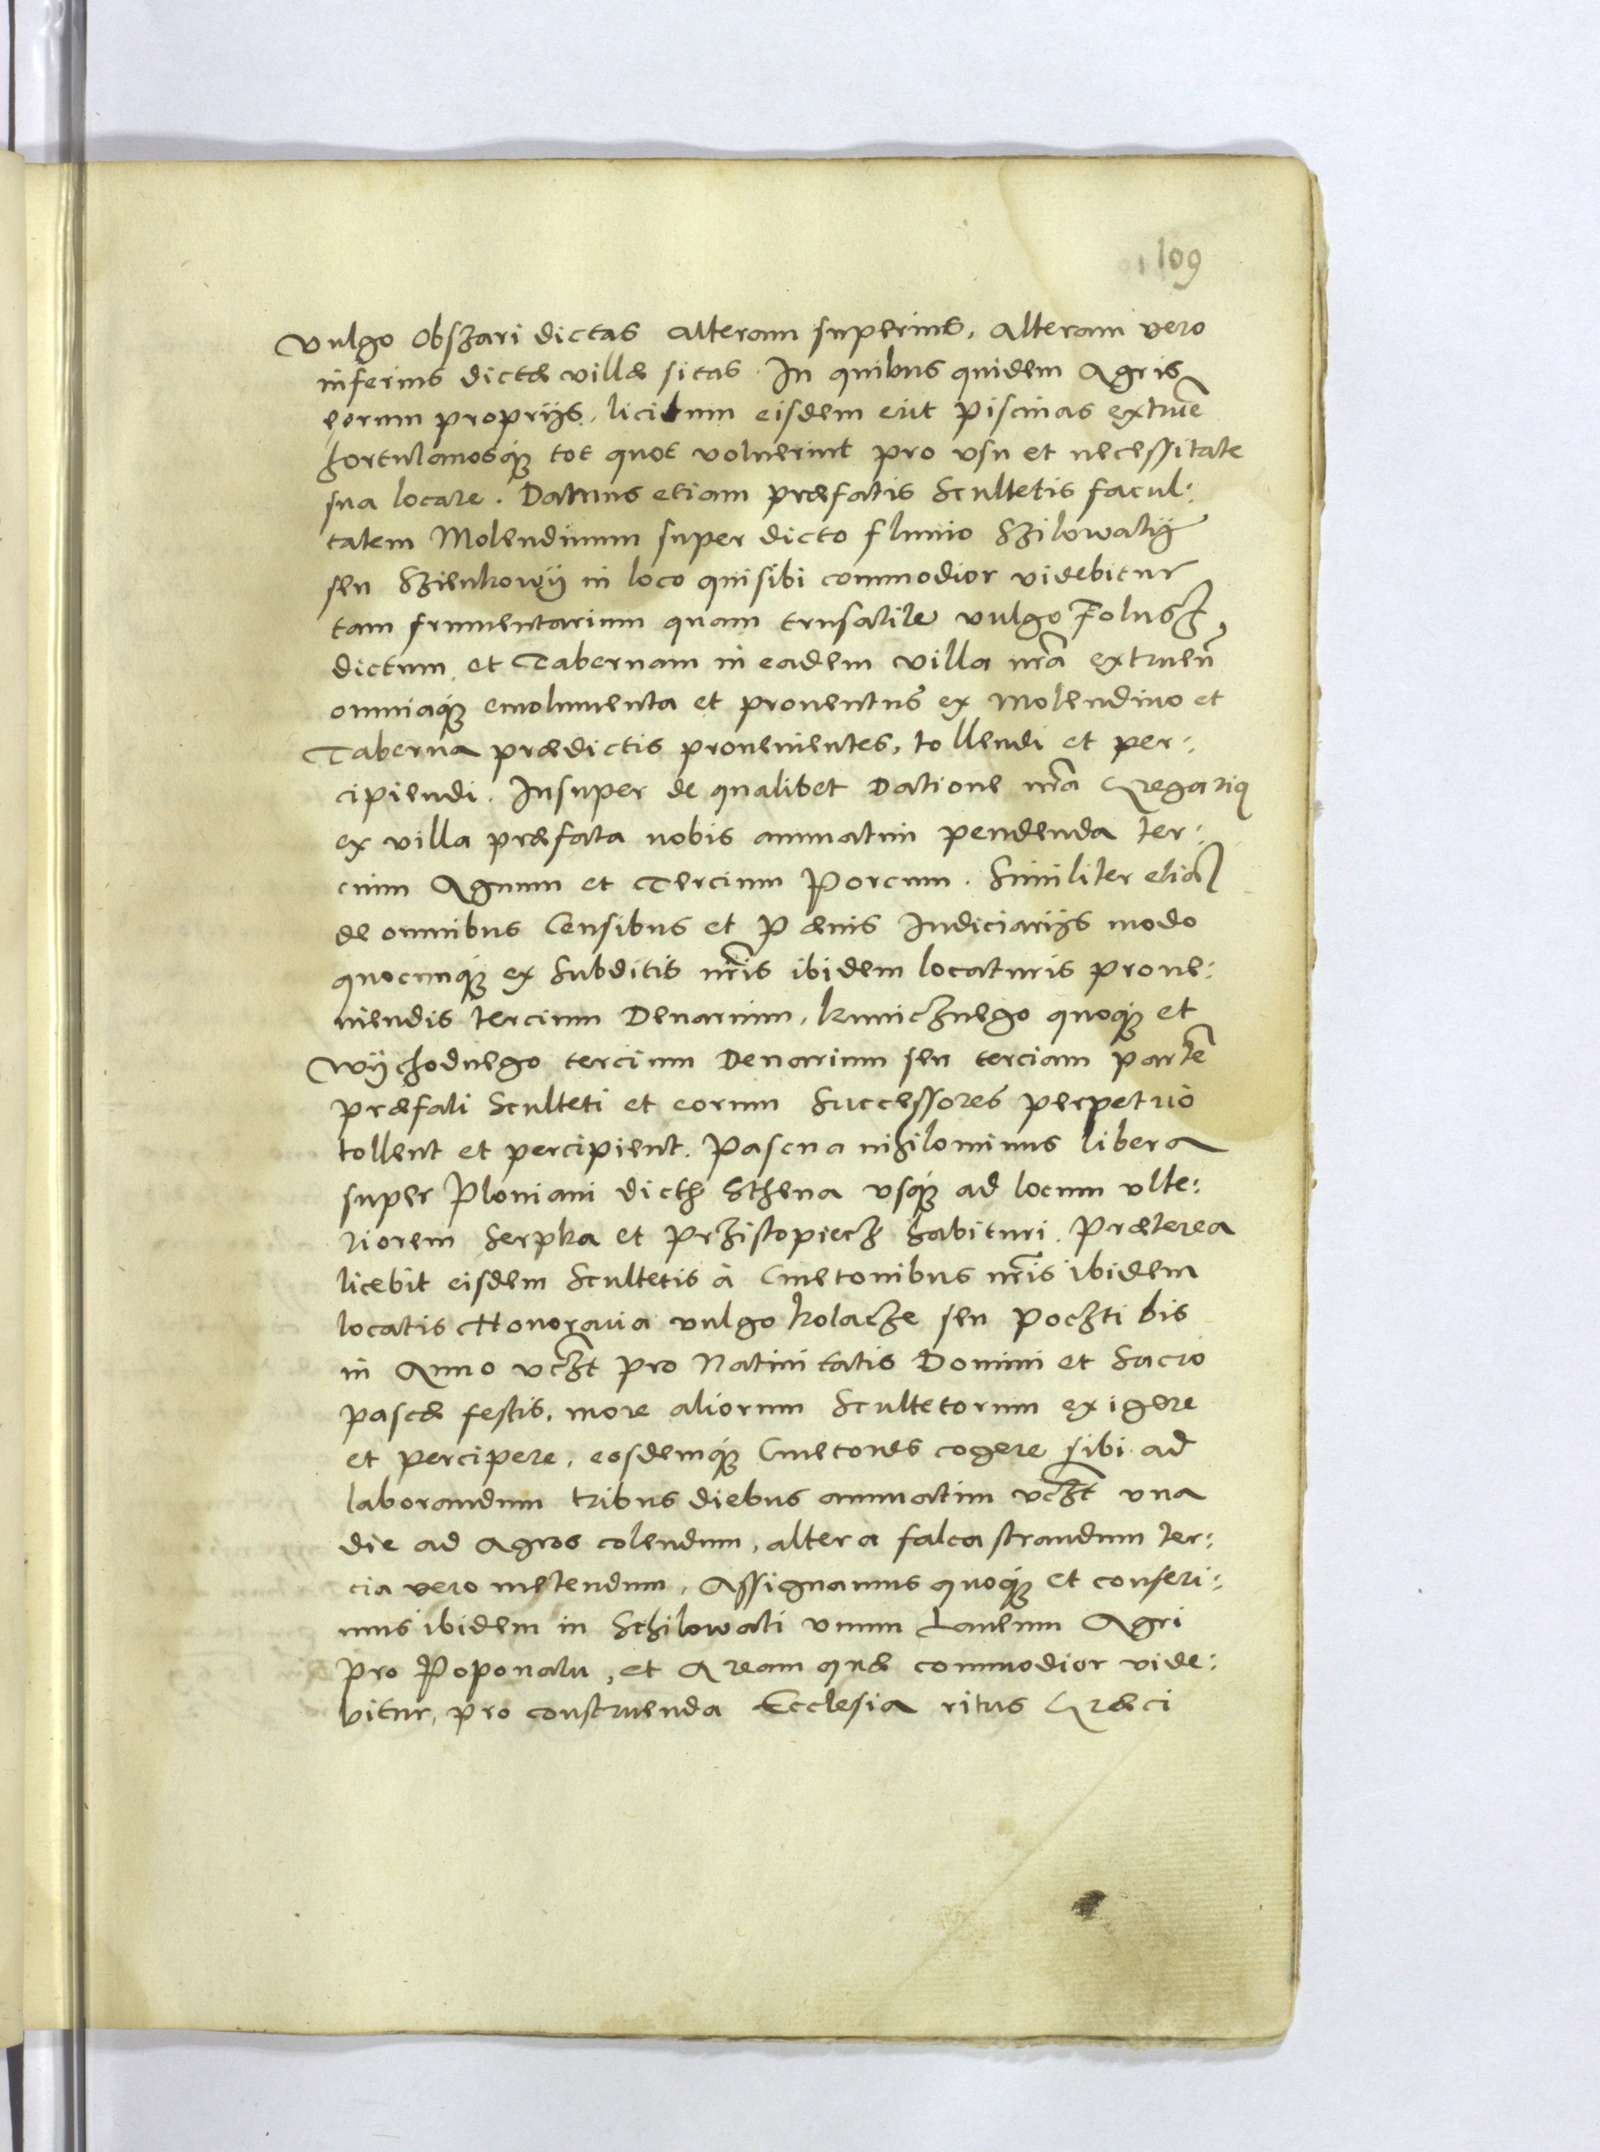 109
Vulgo Obszari dictas alteram superius, alteram vero
inferius dictæ villæ sitas. In quibus quidem Agris
eorum proprijs, licitum eisdem erit piscinas extruẽ
hortulanosq́ue tot quot voluerint pro vsu et necessitate
sua locare. Damus etiam præfatis Scultetis facul:
tatem Molendinum super dicto fluuio Szilowatÿ
seu Szienkowÿ in loco qui sibi commodior videbitur
tam frumentarium quam trusatile vulgo Folusz
dictum, et Tabernam in eadem villa nr̃a extruen̄
omniaq́ue emolumenta et prouentus ex Molendino et
Taberna prædictis prouenientes, tollendi et per:
cipiendi. Insuper de qualibet Datione nr̃a Gregariq
ex villa præfata nobis annuatim pendenda ter:
cium Agnum et Tercium Porcum. Similiter etiã
de omnibus Censibus et Pænis Iudiciarijs modo
quocunq́ue ex Subditis nr̃is ibidem locaturis proue:
niendis tercium Denarium, Kunicznego quoq́ue et
Wÿchodnego tercium Denarium seu terciam partẽ
præfati Sculteti et eorum Successores perpetuò
tollent et percipient. Pascua nihilominus libera
super Ploniani dictæ Sthena vsq́ue ad locum vlte:
riorem Serpka et Przistopiecz habituri. Præterea
licebit eisdem Scultetis à Cmetonibus nr̃is ibidem
locatis Honorauia vulgo Kolacze seu Poczti bis
in Anno vczt pro Natiuitatis Domini et Sacro
pascæ festis, more aliorum Scultetorum exigere
et percipere, eosdemq́ue Cmetones cogere sibi ad
laborandum tribus diebus annuatim vczt vna
die ad Agros colendum, altera falcastrandum ter:
cia vero metendum, Assignamus quoq́ue et conferi:
mus ibidem in Schilowati vnum Laneum Agri
pro Poponatu, et Aream quæ commodior vide:
bitur, pro construenda Ecclesia ritus Græci